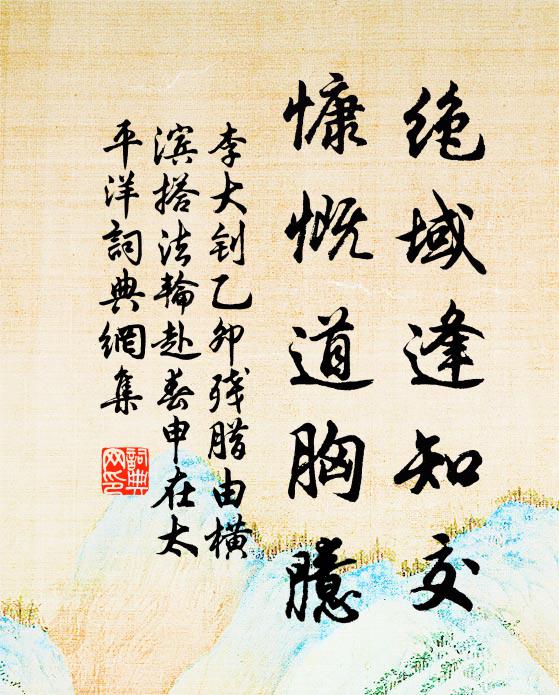 绝域逢知交
慷慨道胸臆
李大钊乙卯残腊由横
滨搭法轮赴春申在太
平洋詞典網集
詞典网印